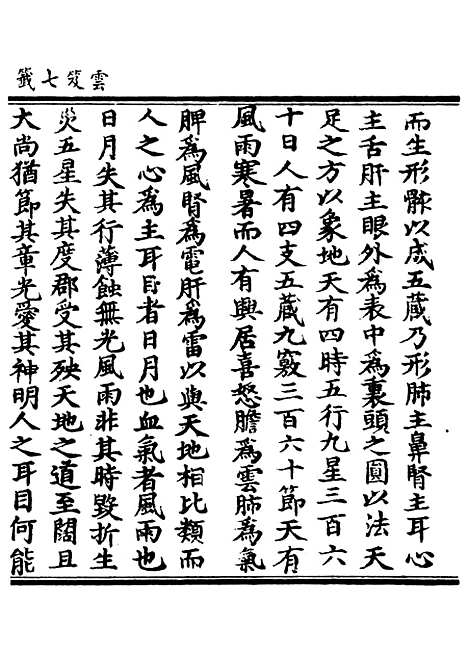 雲笈七籤
而生形骸以成五藏乃形肺主鼻腎主耳心
主舌肝主眼外為表中為裏頭之圓以法天
足之方以象地天有四時五行九星三百六
十日人有四支五藏九竅三百六十節天有
風雨寒暑而人有興居喜怒膽為雲肺為氣
脾為風腎為電肝為雷以與天地相比類而
人之心為主耳目者日月也血氣者風雨也
日月失其行薄蝕無光風雨非其時毀折生
災五星失其度郡受其殃天地之道至闊且
大尚猶節其章光愛其神明人之耳目何能